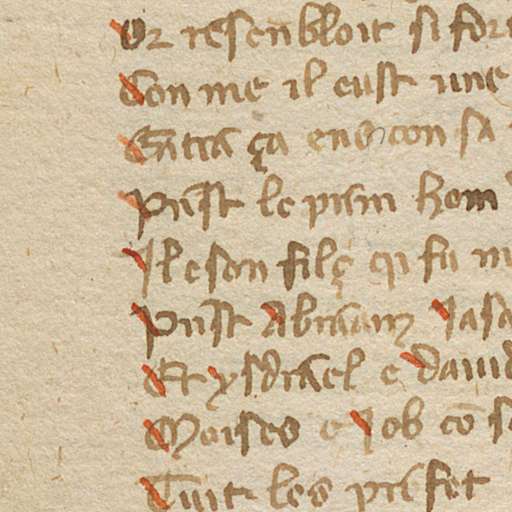 Or resenbloit si fort
Con me il eust une
Gitra ça ens con sa
Prist le prim hom
Il e son filç qi fu m
Prist Abraam Jasa
Et ysdrael e David
Moises e Job cō s
Tuit les prefet